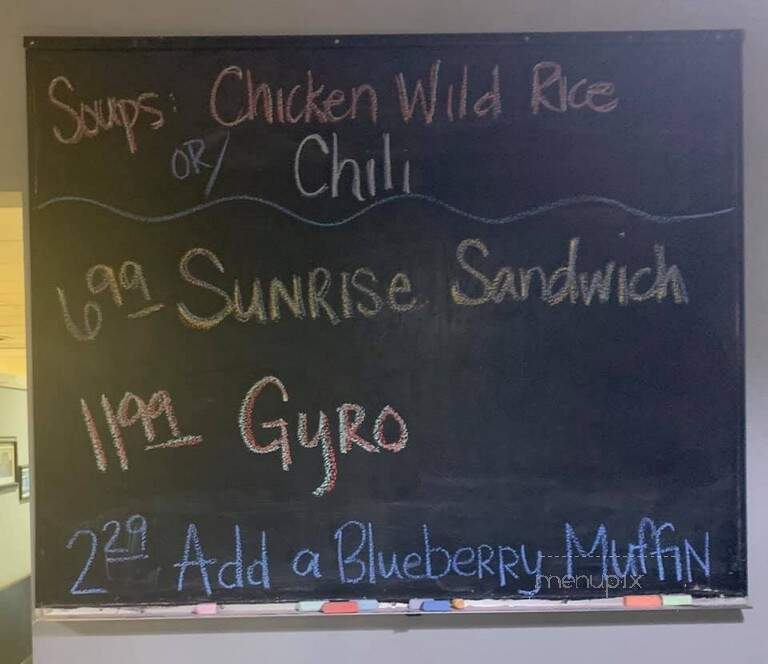 Soups: Chicken Wild Rice
OR/ Chili
6.99 Sunrise Sandwich
11.99 Gyro
2.29 Add a Blueberry Muffin
menupix